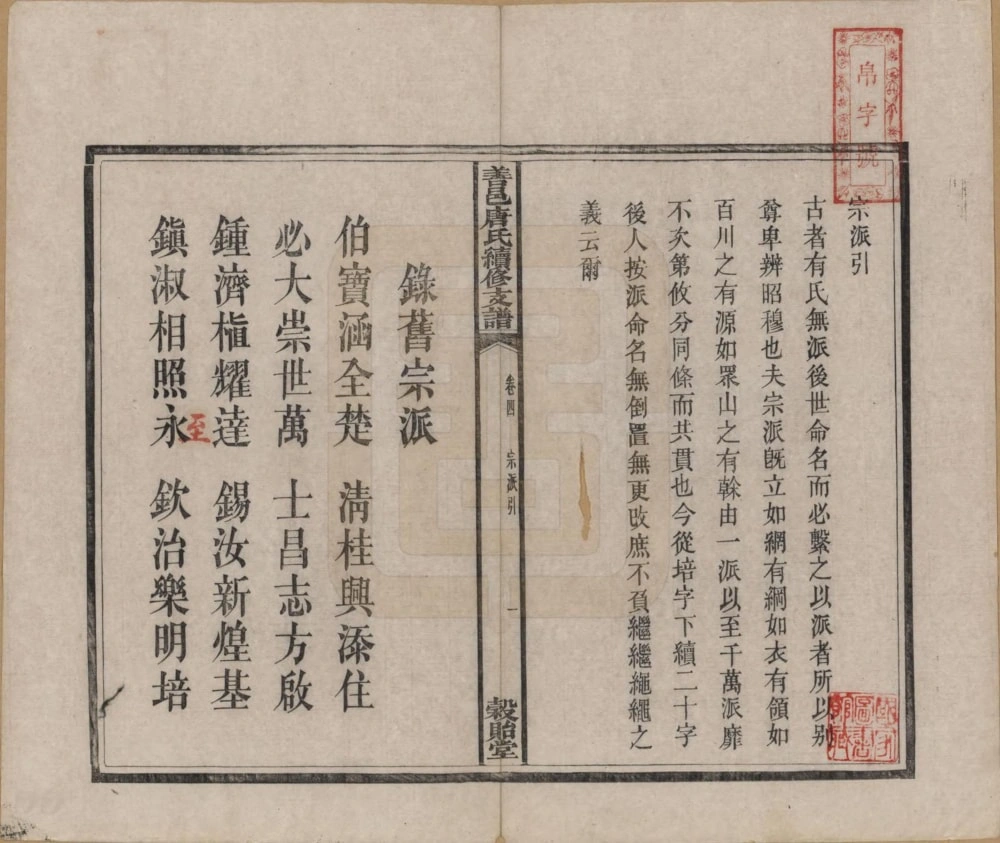 帛字號
宗派引
古者有氏無派後世命名而必繫之以派者所以别
尊卑辨昭穆也夫宗派旣立如網有綱如衣有領如
百川之有源如眾山之有榦由一派以至千萬派靡
不失第攸分同條而共貫也今從培字下續二十字
後人按派命名無倒置無更改庶不負繼繼繩繩之
義云爾
善邑唐氏續修支譜
卷四
宗派引
一
穀貽堂
錄舊宗派
伯寶涵全楚 淸桂興添住
必大崇世萬 士昌志方啟
鍾濟楦耀達 錫汝新煌基
至
鎭淑相照永 欽治樂明培